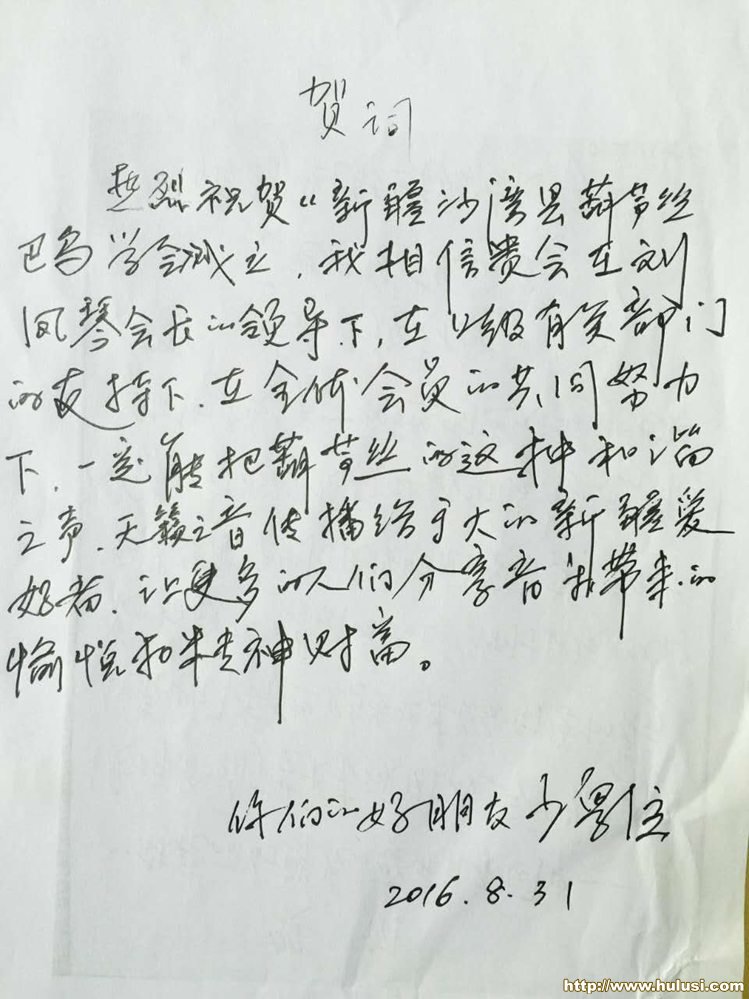 贺词
热烈祝贺“新疆沙湾县葫芦丝
巴乌学会成立，我相信贵会在刘
凤琴会长的领导下，在上级有关部门
的支持下、在全体会员的共同努力
下，一定能把葫芦丝的这种和谐
之声、天籁之音传播给广大的新疆爱
好者，让更多的人们分享音乐带来的
愉悦和精神财富。
你们的好朋友
2016.8.31
http://www.hulusi.com